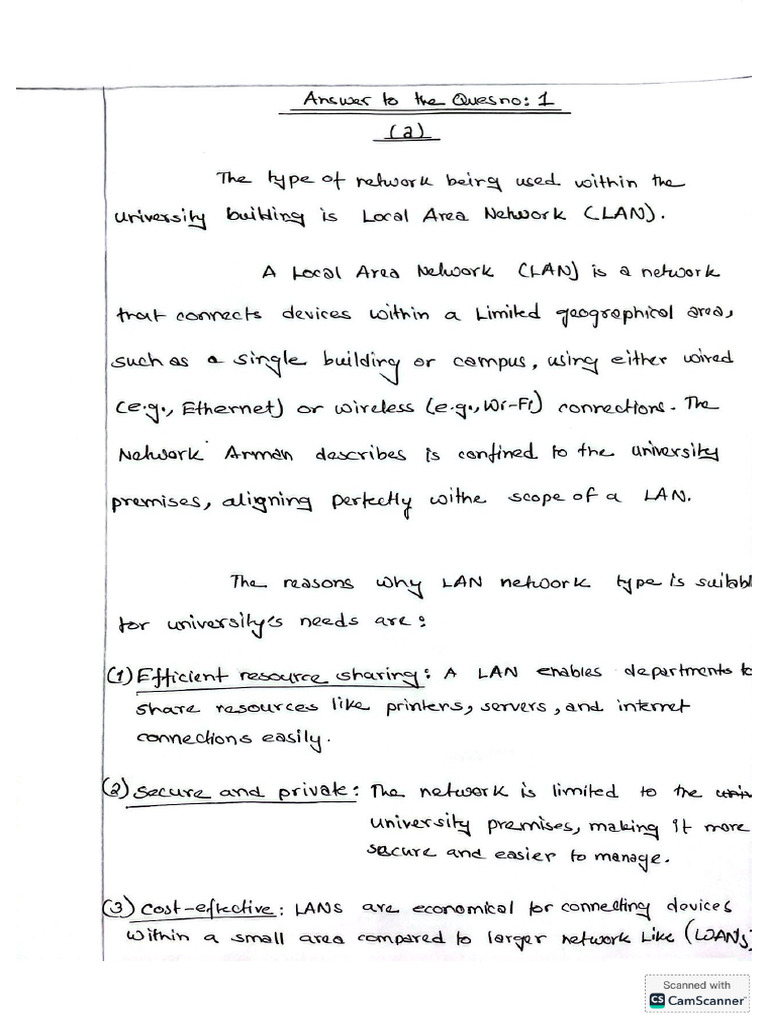 Answer to the Ques no: 1
(a)
The type of network being used within the
university building is Local Area Network (LAN).
A Local Area Network (LAN) is a network
that connects devices within a Limited geographical area,
such as a single building or campus, using either wired
(e.g., Ethernet) or wireless (e.g., Wi-Fi) connections. The
Network Arman describes is confined to the university
premises, aligning perfectly withe scope of a LAN.
The reasons why LAN network type is suitabl
for university's needs are:
(1) Efficient resource sharing: A LAN enables departments to
share resources like printers, servers, and internet
connections easily.
(2) Secure and private: The network is limited to the
university premises, making it more
secure and easier to manage.
(3) Cost-effective: LANS are economical for connecting devices
within a small area compared to larger network like (WANs)
Scanned with
CS CamScanner